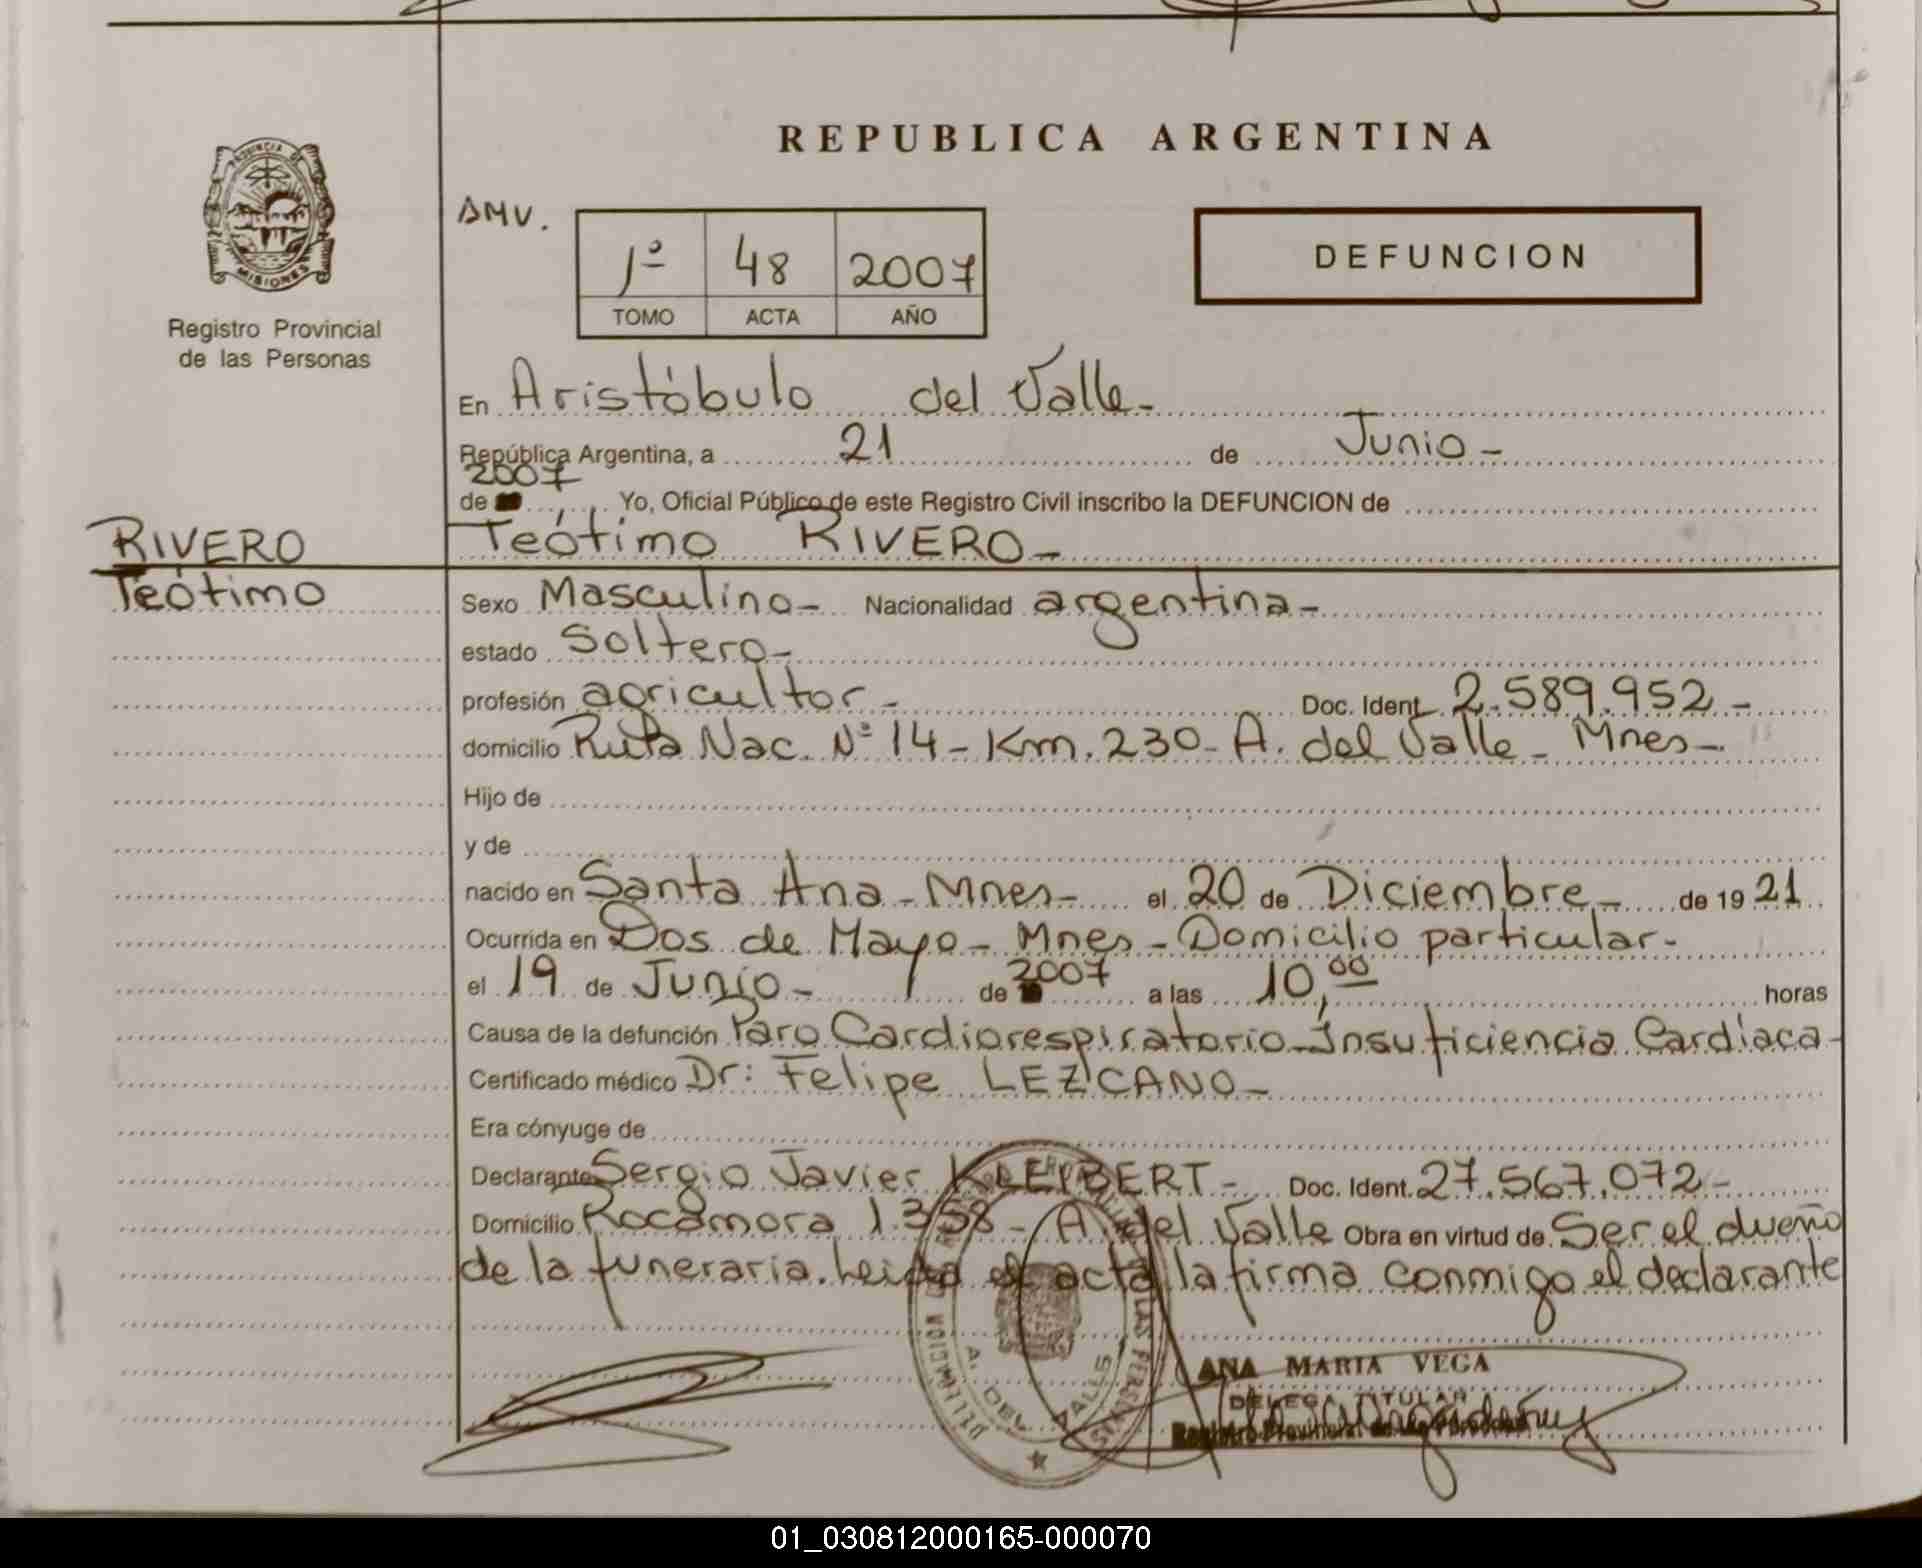 REPUBLICA ARGENTINA
PROVINCIA DE
MISIONES
Registro Provincial
de las Personas
AMV.
1º 48 2007
TOMO ACTA AÑO
DEFUNCION
En Aristóbulo del Valle-
República Argentina, a 21 de Junio-
2007
de Yo, Oficial Público de este Registro Civil inscribo la DEFUNCION de
RIVERO
Teótimo RIVERO-
Teótimo
Sexo Masculino- Nacionalidad argentina-
estado Soltero-
profesión agricultor- Doc. Ident. 2.589.952-
domicilio Ruta Nac. Nº 14- Km. 230- A. del Valle- Mnes-
Hijo de
y de
nacido en Santa Ana- Mnes- el 20 de Diciembre- de 19 21
Ocurrida en Dos de Mayo- Mnes- Domicilio particular-
el 19 de Junio- de 2007 a las 10,00 horas
Causa de la defunción Paro Cardiorespiratorio-Insuficiencia Cardíaca-
Certificado médico Dr: Felipe LEZCANO-
Era cónyuge de
Declarante Sergio Javier KLEIBERT- Doc. Ident. 27.567.072-
Domicilio Rocamora 1.358- A. del Valle Obra en virtud de Ser el dueño
de la funeraria. Leida el acta la firma conmigo el declarante
A. DEL VALLE
ANA MARIA VEGA
DELEG. TITULAR
Registro Provincial de las Personas
01_030812000165-000070